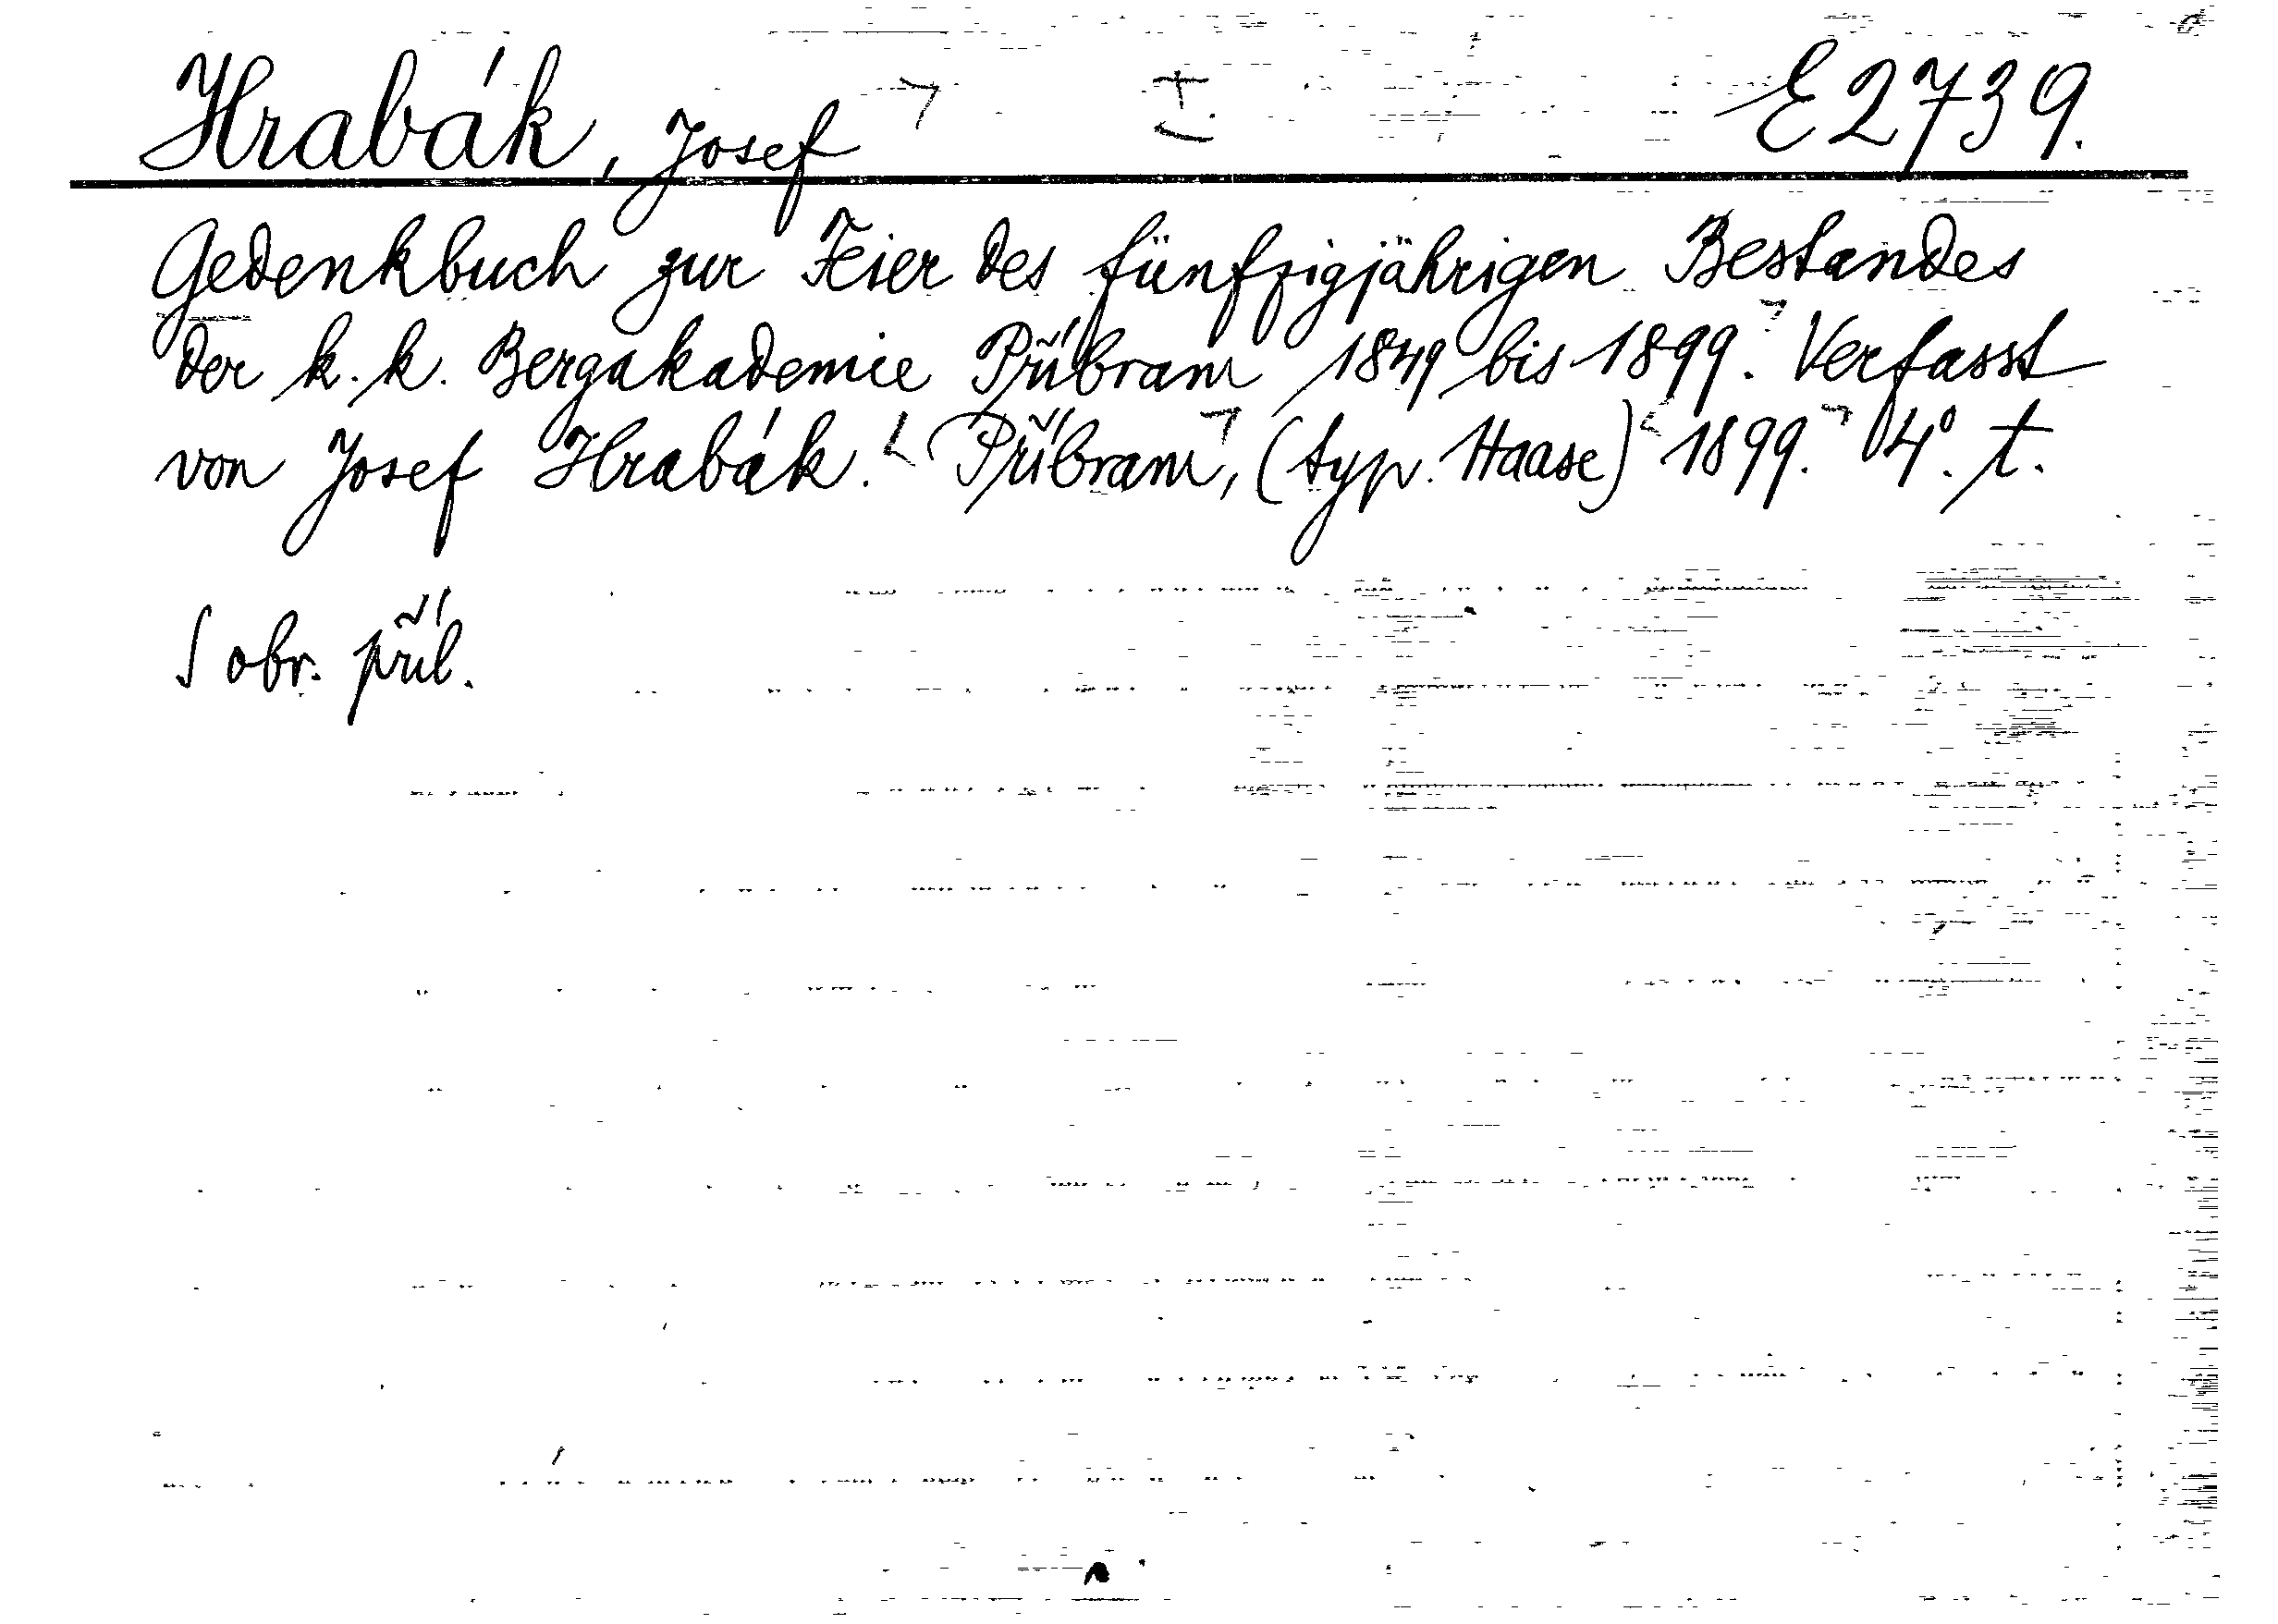 Hrabák, Josef E 2739.
Gedenkbuch zur Feier des fünfzigjährigen Bestandes
der k. k. Bergakademie Příbram 1849 bis 1899. Verfasst
von Josef Hrabák. Příbram, (typ. Haase) 1899. 4°. t.
S obr. příl.